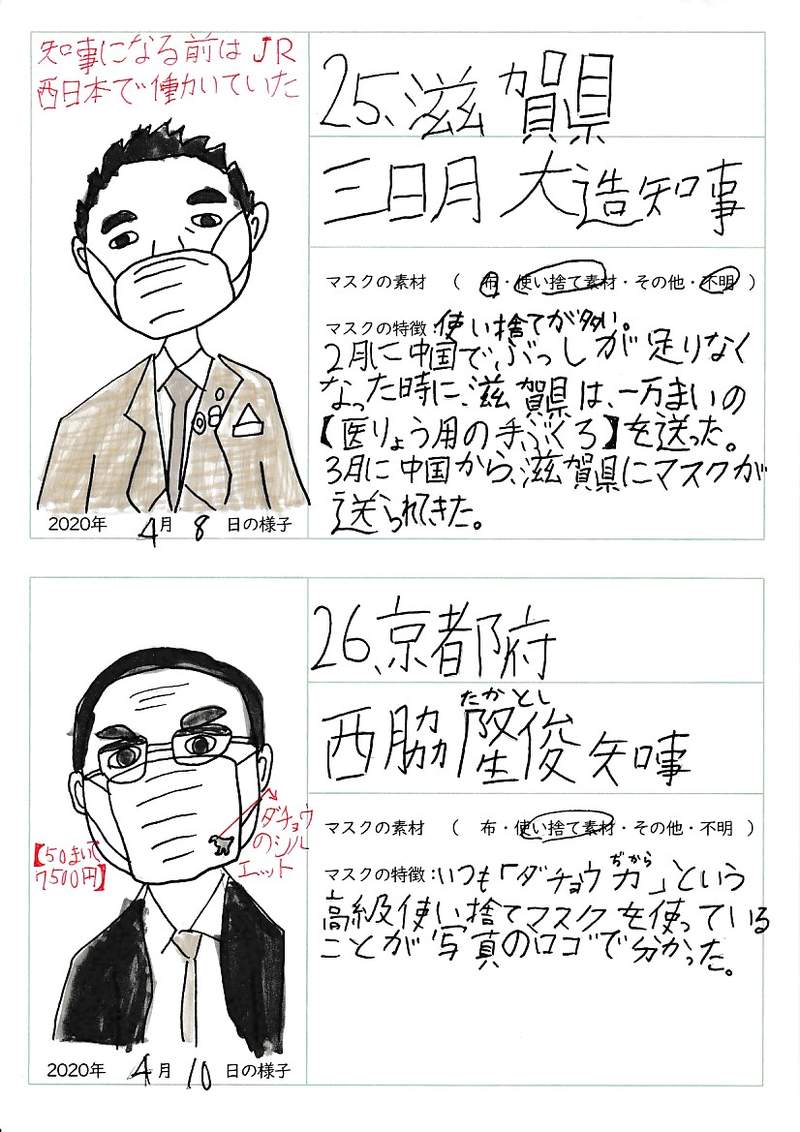 知事になる前はJR
西日本で働いていた
25、滋賀県
三日月 大造知事
マスクの素材 ( 布・使い捨て素材・その他・不明 )
マスクの特徴:使い捨てが多い。
2月に中国で、ぶっしが足りなく
なった時に、滋賀県は、一万まいの
【医りょう用の手ぶくろ】を送った。
3月に中国から、滋賀県にマスクが
送られてきた。
2020年 4月 8日の様子
26、京都府
たかとし
西脇 隆俊 知事
マスクの素材 ( 布・使い捨て素材・その他・不明 )
ダチョウ
のシル
エット
【50まいで
7500円】
ぢから
マスクの特徴:いつも「ダチョウ力」という
高級使い捨てマスクを使っている
ことが写真のロゴで分かった。
2020年 4月 10日の様子